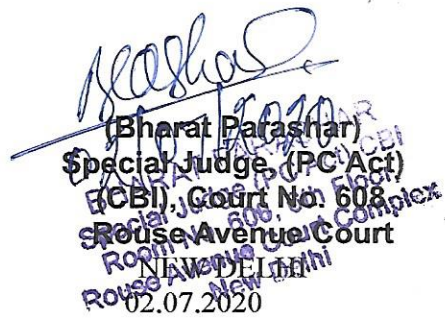 02/07/2020
(Bharat Parashar)
Special Judge, (PC Act)
(CBI), Court No. 608
Rouse Avenue Court
NEW DELHI
02.07.2020
BHARAT PARASHAR
Special Judge (PC Act) CBI
Room No. 608, 6th Floor
Rouse Avenue Court Complex
New Delhi